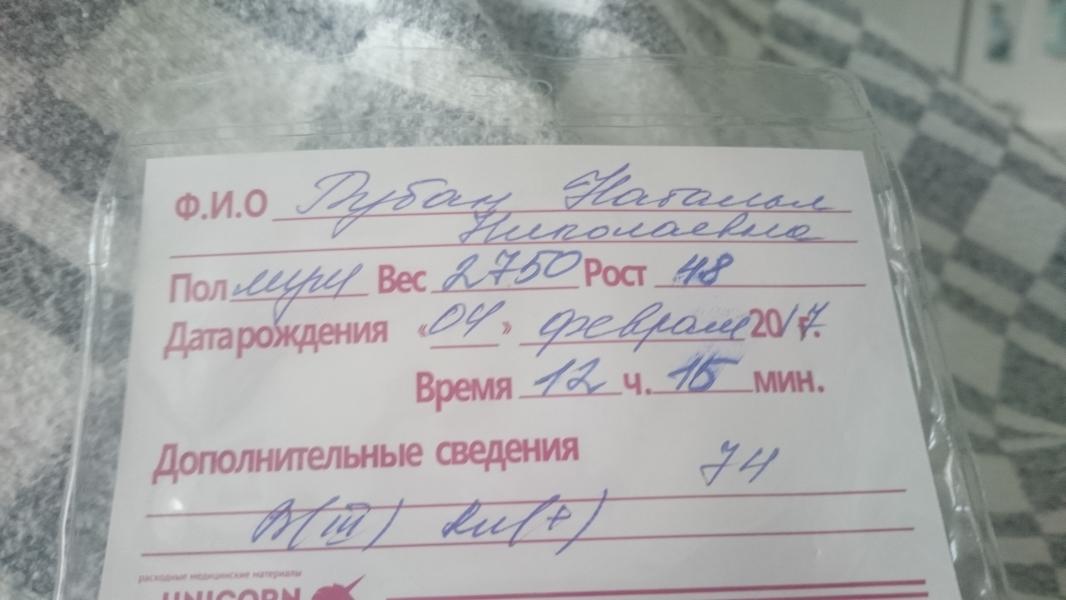 Ф.И.О Рубан Наталья
Николаевна
Пол муж Вес 2750 Рост 48
Дата рождения «04» февраля 2017 г.
Время 12 ч. 15 мин.
Дополнительные сведения 74
B(III) Rh(+)
расходные медицинские материалы
UNICORN